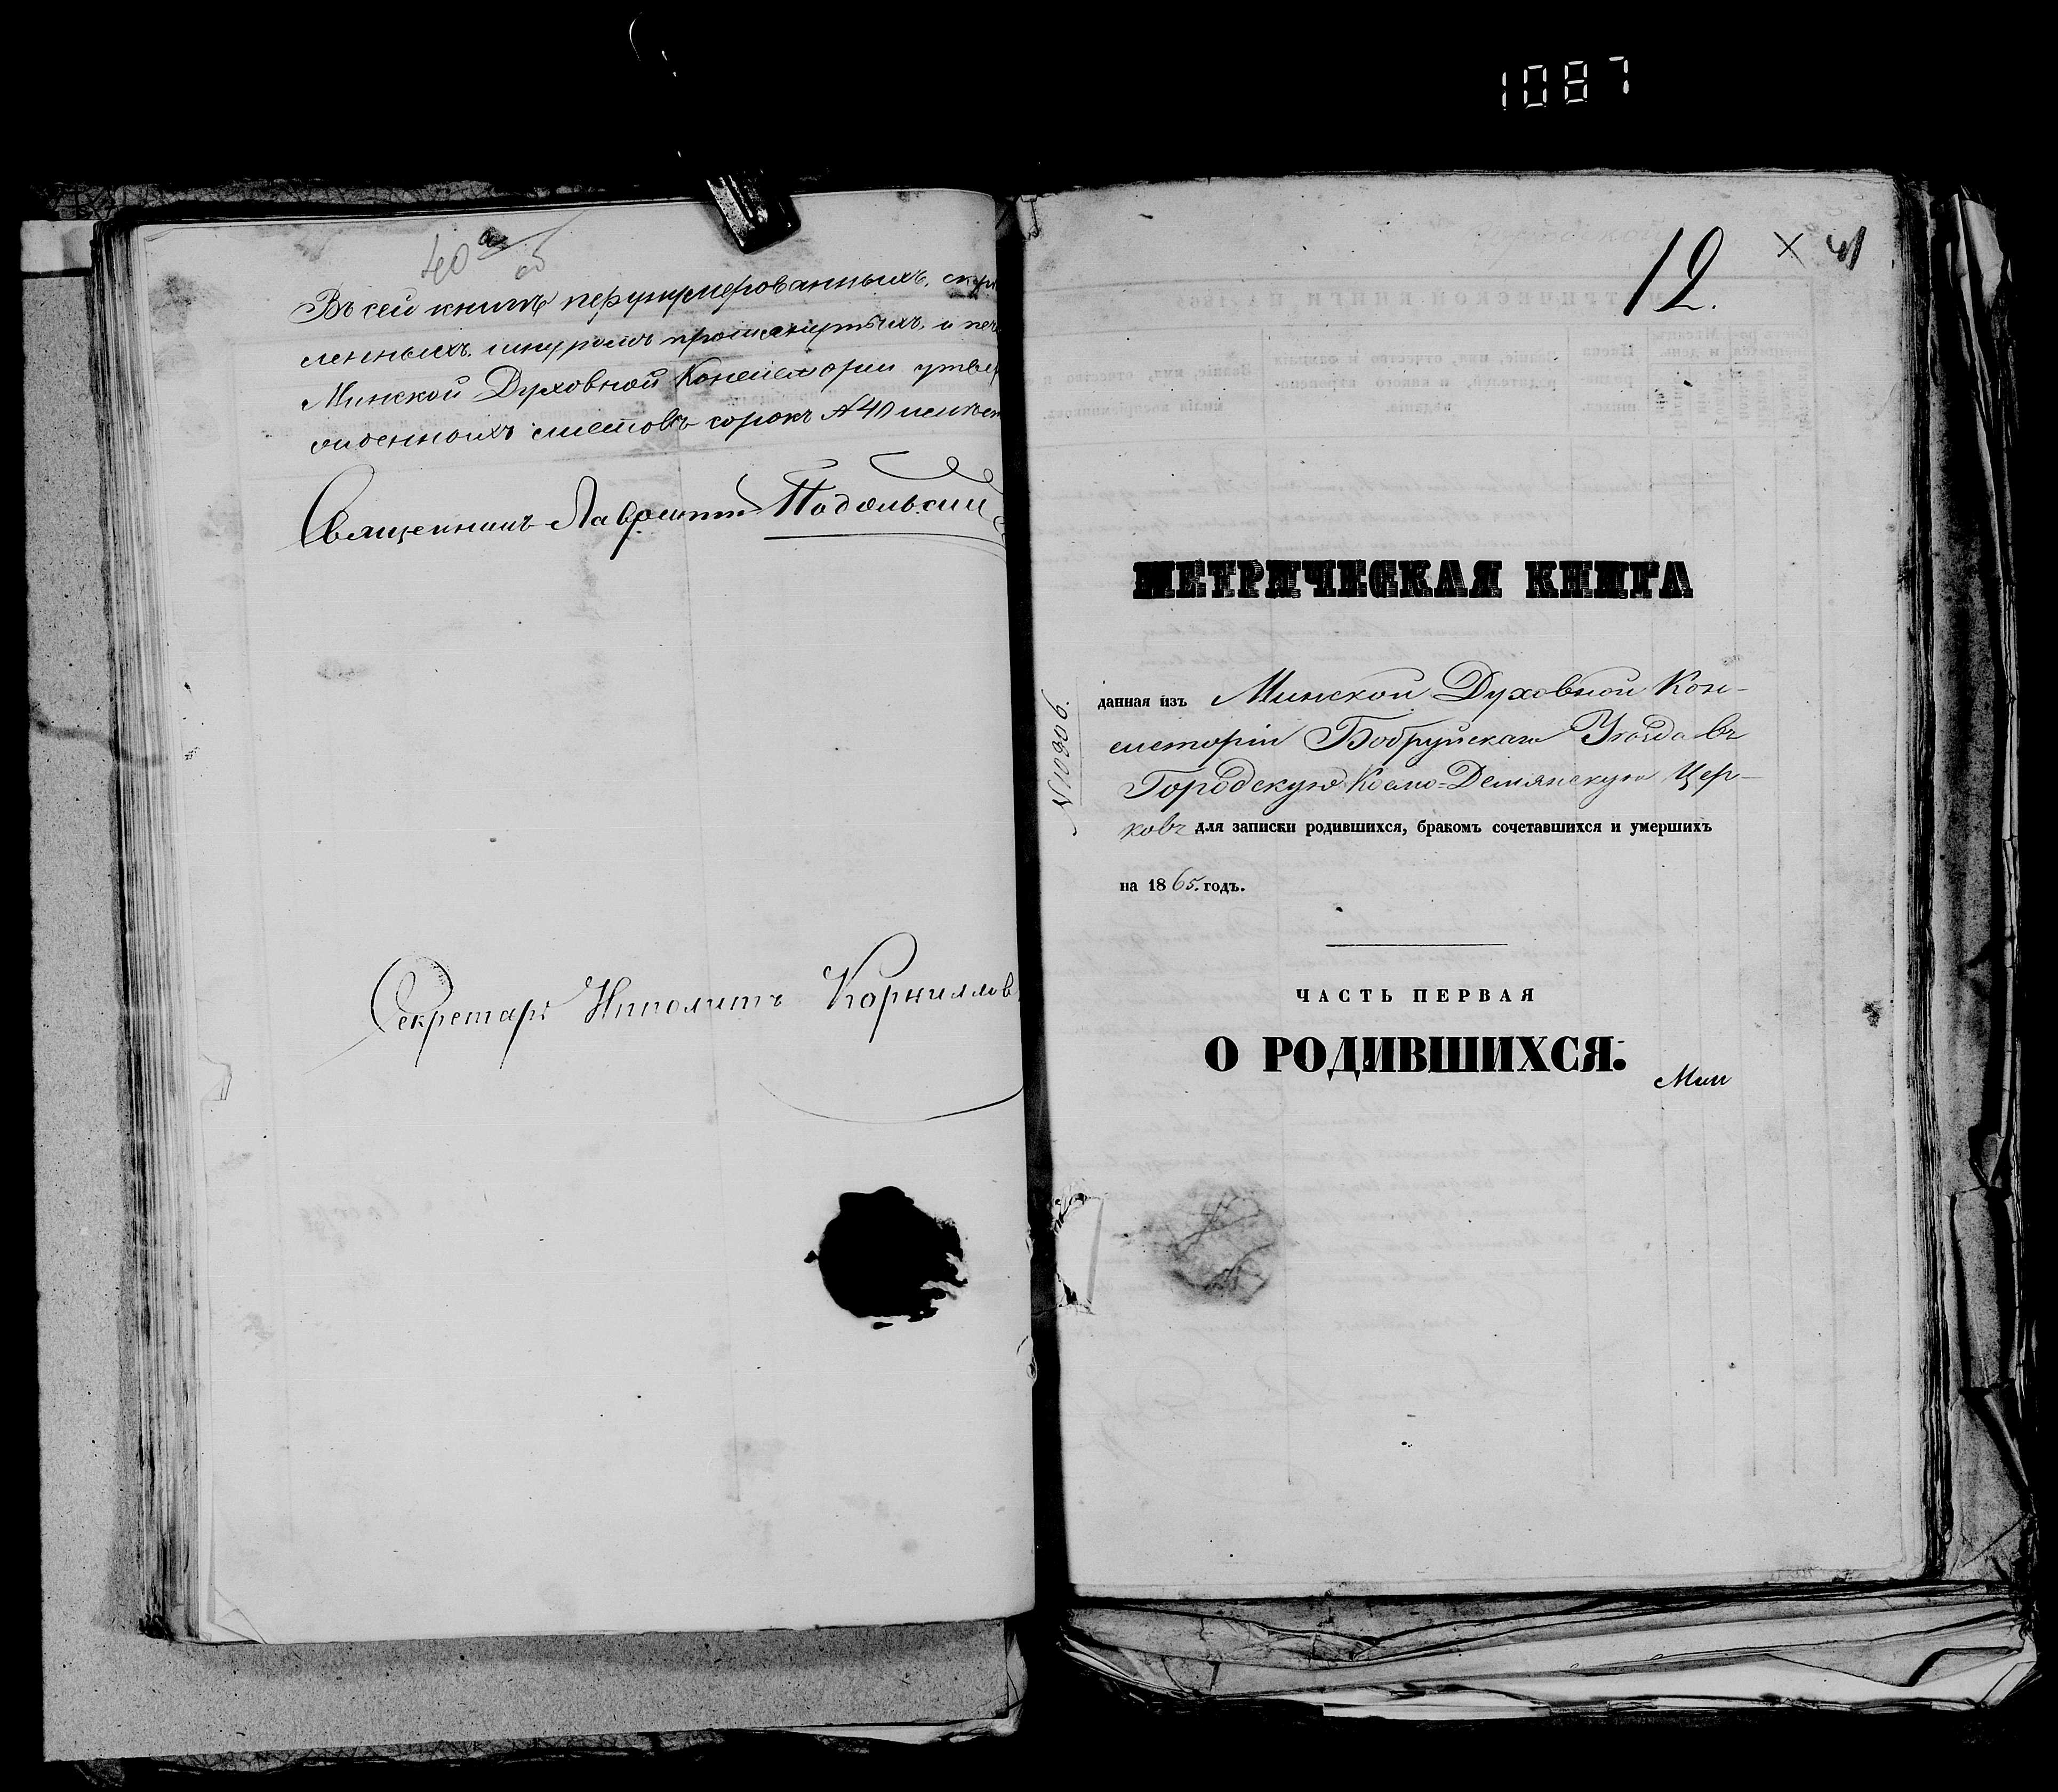 1087
40 об
Въ сей книгѣ перенумерованныхъ, скрѣ
ленныхъ, шнуромъ прошнурныхъ и печа
Минской Духовной Консисторіи утвер
жденныхъ листовъ сорокъ №40
Священникъ Лаврентій Подольскій
Секретарь Ипполитъ Корнилов
12. × 41
МЕТРИЧЕСКАЯ КНИГА
№10906.
данная изъ Минской Духовной Кон-
систоріи Бобруйскаго Уѣзда въ
Городскую Космо=Демянскую Цер-
ковь для записки родившихся, бракомъ сочетавшихся и умершихъ
на 1865. годъ.
ЧАСТЬ ПЕРВАЯ
О РОДИВШИХСЯ.
Мин